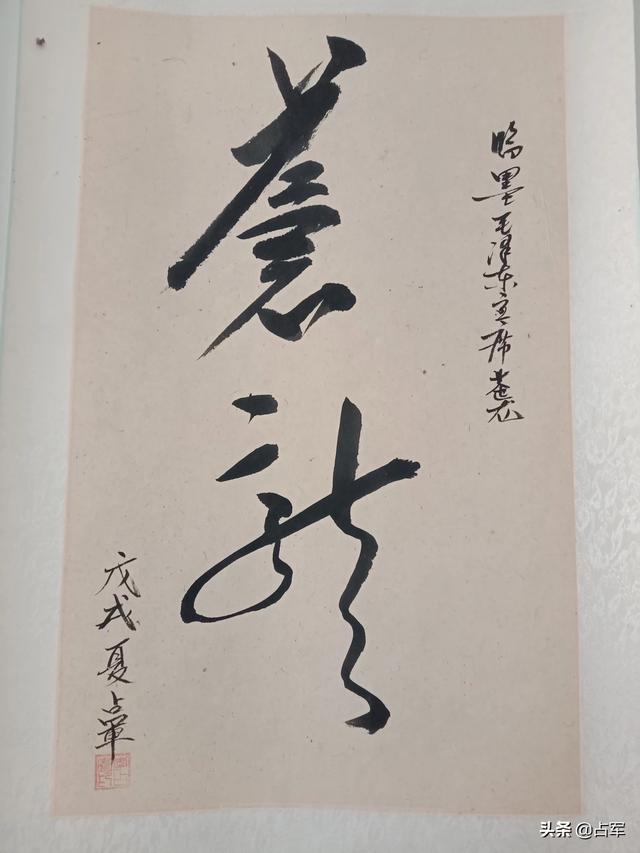 临墨毛泽东主席蒼龙
蒼龍
戊戌夏占軍
头条 @占军